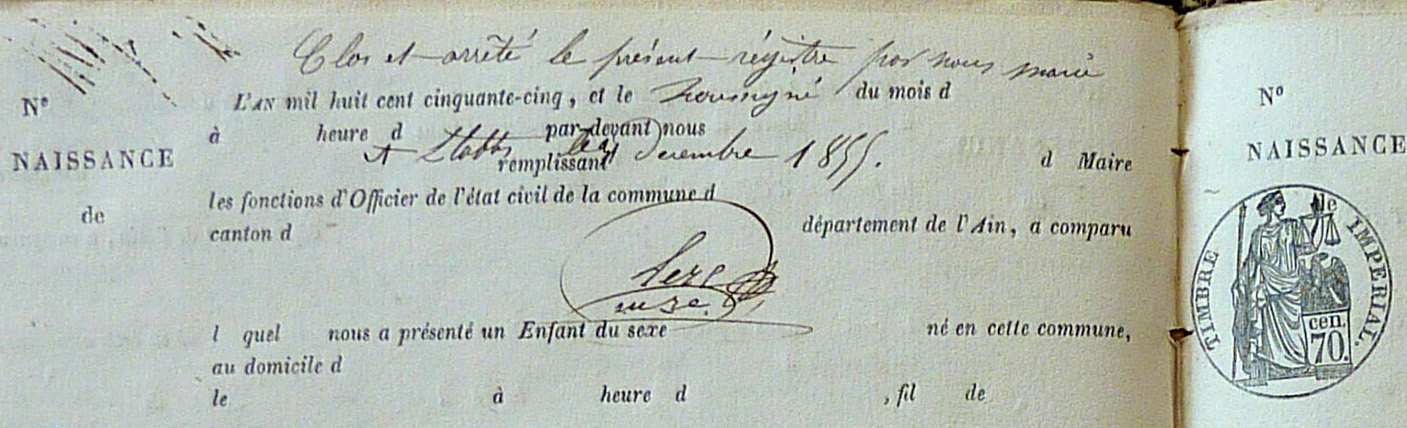 Clos et arrêté le présent régistre par nous maire
Nº
L'AN mil huit cent cinquante-cinq, et le soussigné du mois d
à heure d par devant nous
NAISSANCE
A le décembre 1855.
remplissant d Maire
de
les fonctions d'Officier de l'état civil de la commune d
canton d département de l'Ain, a comparu
l quel nous a présenté un Enfant du sexe né en cette commune,
au domicile d
le à heure d , fil de
Nº
NAISSANCE
de
TIMBRE IMPÉRIAL.
cen.
70.